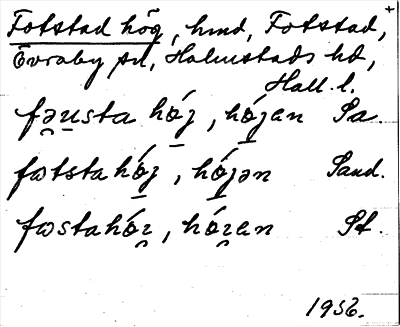 +
Fotstad hög, hmd, Fotstad,
Övraby sn, Halmstads hd,
Hall. l.
fəusta hój, hójen Sa.
fɷtsta hój, hójən Sand.
fɷsta hóʐ, hóʐen St.
1956.